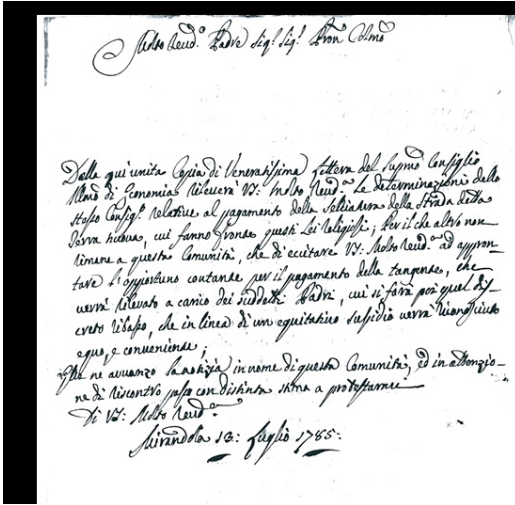 Molto Rev.º Padre Sig.r Sig.r Pron Colmo
Dalla qui unita Copia di Veneratissima Lettera del Supmo Consiglio
Illmo di Economia rileverà V.S. Molto Rev.da le determinazioni dello
stesso Consig.º relative al pagamento della Selciatura della Strada detta
Terra nuova, cui fanno fronte questi Lei Religiosi; Per il che altro non
rimane a questa Comunità, che di eccitare V.S. Molto Rev.da ad appron-
tare l'opportuno contante per il pagamento della tangente, che
verrà rilevato a carico dei suddetti Padri, cui si farà poi quel dis-
creto ribasso, che in linea di un equitativo sussidio verrà riconosciuto
equo, e conveniente;
Gliene avvanzo la notizia in nome di questa Comunità, ed in attenzio-
ne di riscontro passo con distinta stima a protestarmi
Di V.S. Molto Rev.da
Mirandola 13: Luglio 1785: